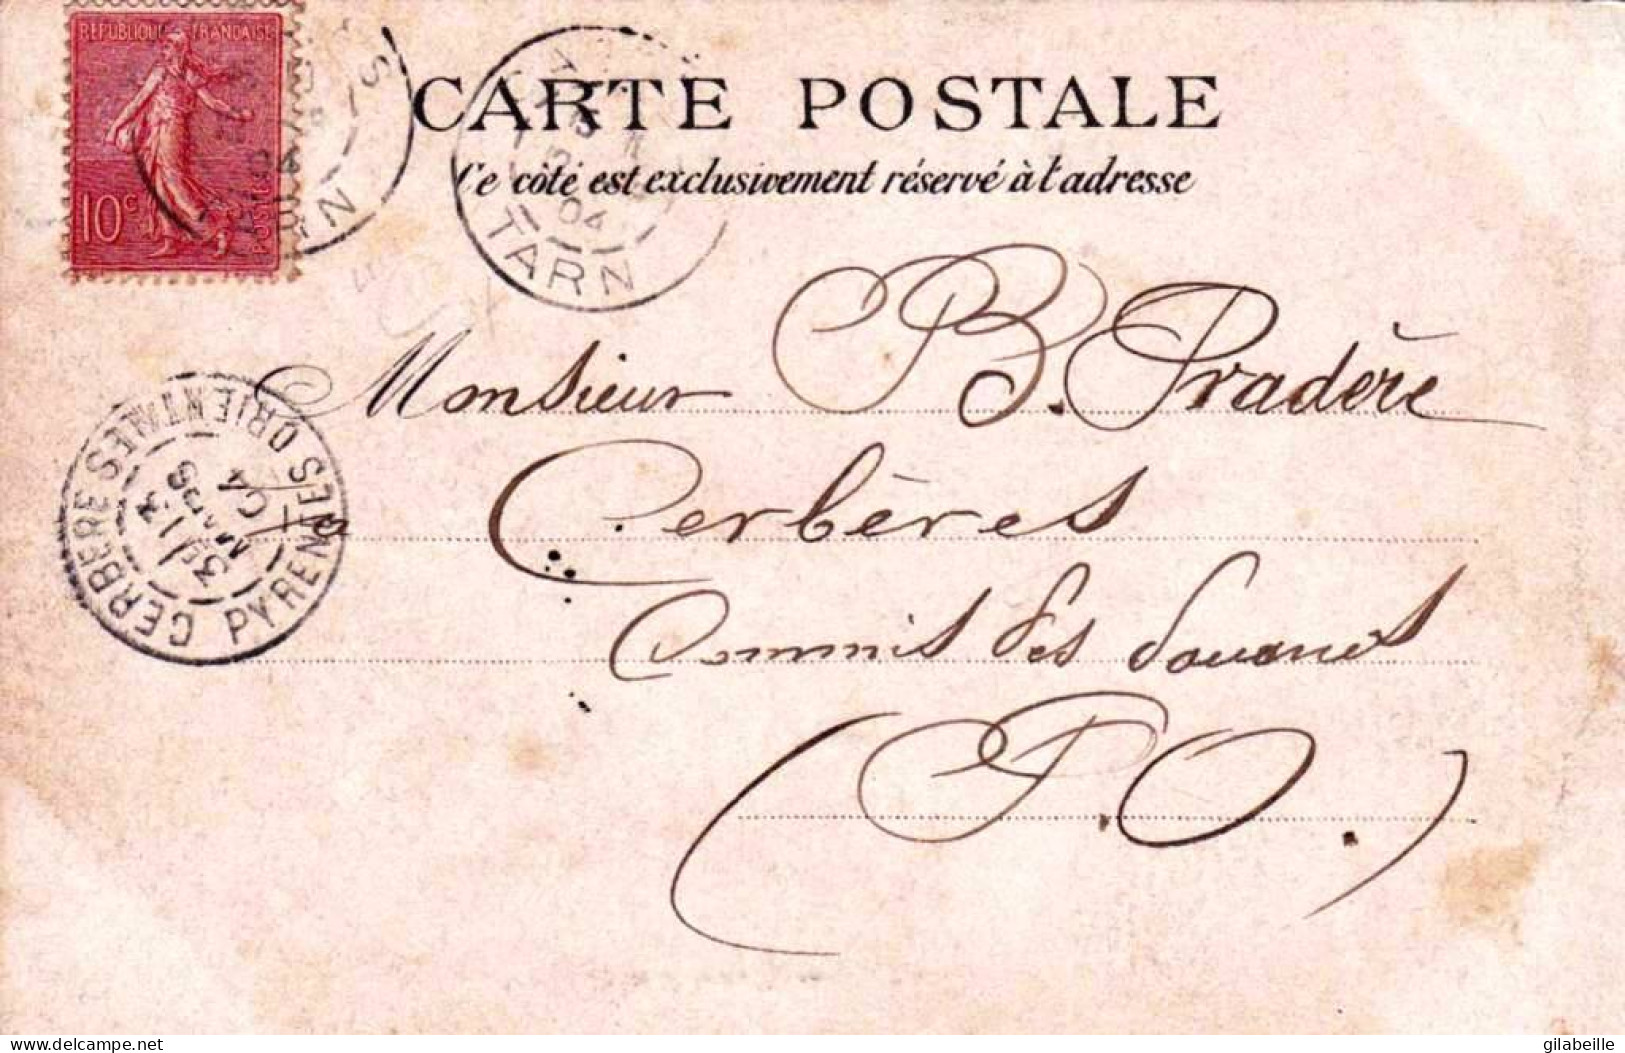 REPUBLIQUE FRANÇAISE
10c
POSTES
TARN
04
TARN
CARTE POSTALE
Ce côté est exclusivement réservé à l'adresse
Monsieur B. Pradère
à Cerbères
Commis des douanes
(P. O.)
CERBERE PYRENEES ORIENTALES
13
MARS
04
gilabeille